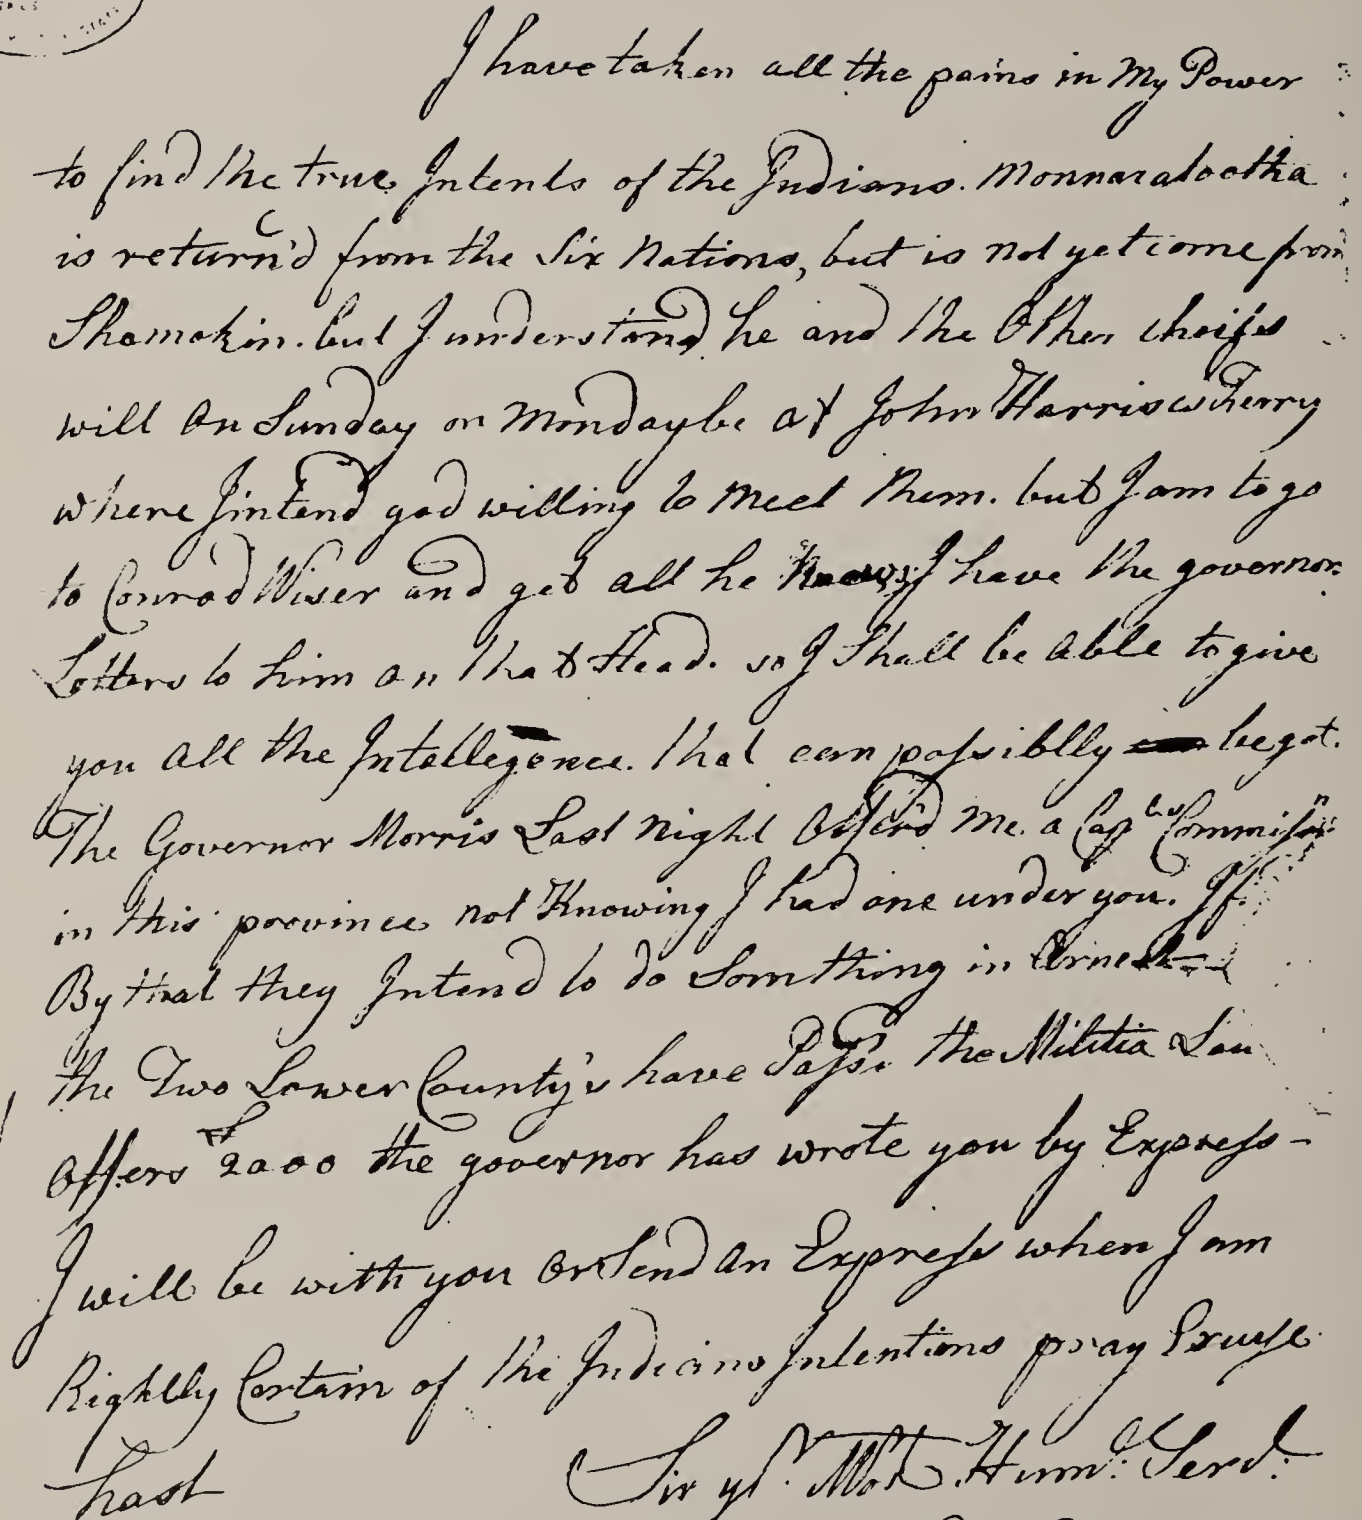 I have taken all the pains in My Power
to find the true Intents of the Indians. Monnacatootha
is return'd from the Six Nations, but is not yet come from
Shamokin. but I understand he and the Other cheifs
will on Sunday or Monday be at John Harris's Ferry
where I intend god willing to meet them. but I am to go
to Conrad Wiser and get all he knows, I have the governors
Letters to him on that Head. so I Shall be able to give
you all the Intellegence. that can possiblly be got.
The Governor Morris Last Night Offer'd me. a Capts Commissn
in this province not Knowing I had one under you. If.
By that they Intend to do Somthing in Ernest
the Two Lower County's have Pass'd the Militia Law
Offers £2000 the governor has wrote you by Express -
I will be with you or Send an Express when I am
Rightly Certain of the Indians Intentions pray Excuse
hast Sir yr. Mot. Huml. Servt.